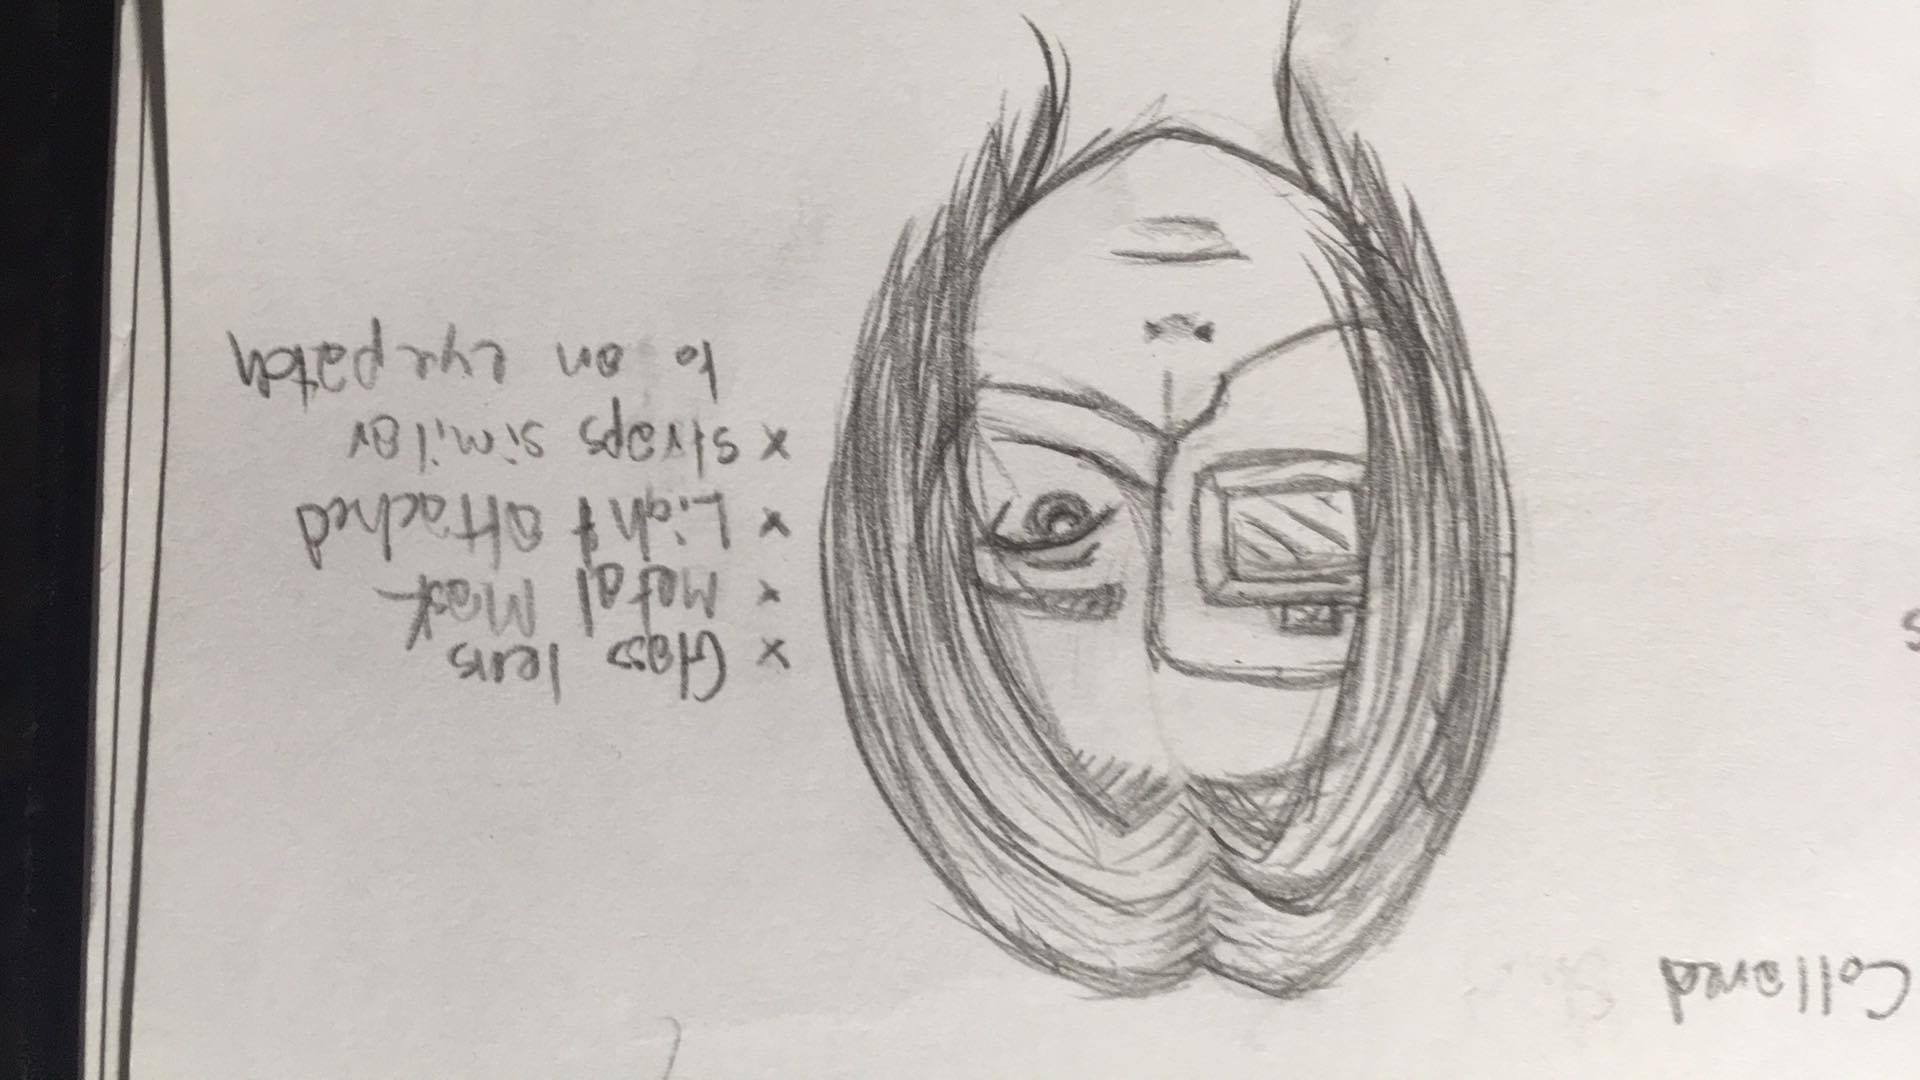 Collared
s
x Glass lens
x Metal Mask
x Light attached
x straps similar
to an eyepatch